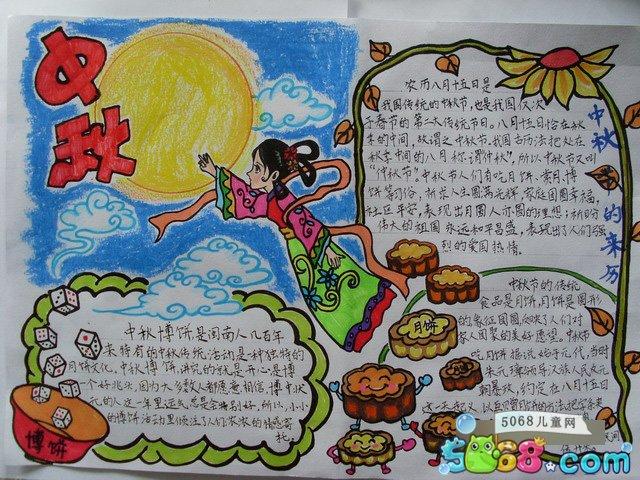 中秋
农历八月十五日是
我国传统的中秋节,也是我国仅次
于春节的第二大传统节日。八月十五恰在秋
季的中间,故谓之中秋节。我国古历法把处在
秋季中间的八月称谓“仲秋”,所以中秋节又叫
“仲秋节”。中秋节人们有吃月饼、赏月、博
饼等习俗,祈求人生圆满光辉,家庭团圆幸福,
社区平安,表现出月圆人亦圆的理想;祈盼
伟大的祖国永远和平昌盛,表现出了人们强
烈的爱国热情。
中秋的来历
中秋节的传统
食品是月饼,月饼是圆形
的,象征团圆,反映了人们对
家人团聚的美好愿望。中秋节
吃月饼据说始于元代,当时
朱元璋领导汉族人民反元
朝暴政,约定在八月十五日
这一天起义,以
月饼
中秋博饼是闽南人几百年
来特有的中秋传统活动是一种独特的
月饼文化。中秋博饼,讲究的就是开心是博
一个好兆头,因为大多数人都愿意相信,博中状
元的人这一年里运气总是会特别好。所以,小小
的博饼活动里倾注了人们浓浓的情感寄
托。
博饼
5068儿童网
5068.com